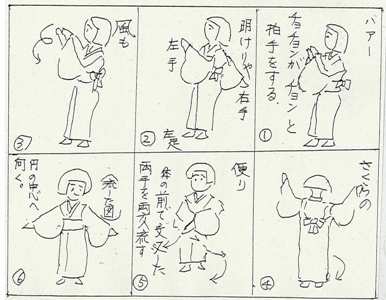 ハアー
チョチョンガチョンと
拍手をする.
①
明けりゃ
右手
左手
左足
②
風も
③
さくらの
④
便り
体の前で交叉した
両手を両方へ流す
⑤
流した図
円の中心へ
向く。
⑥